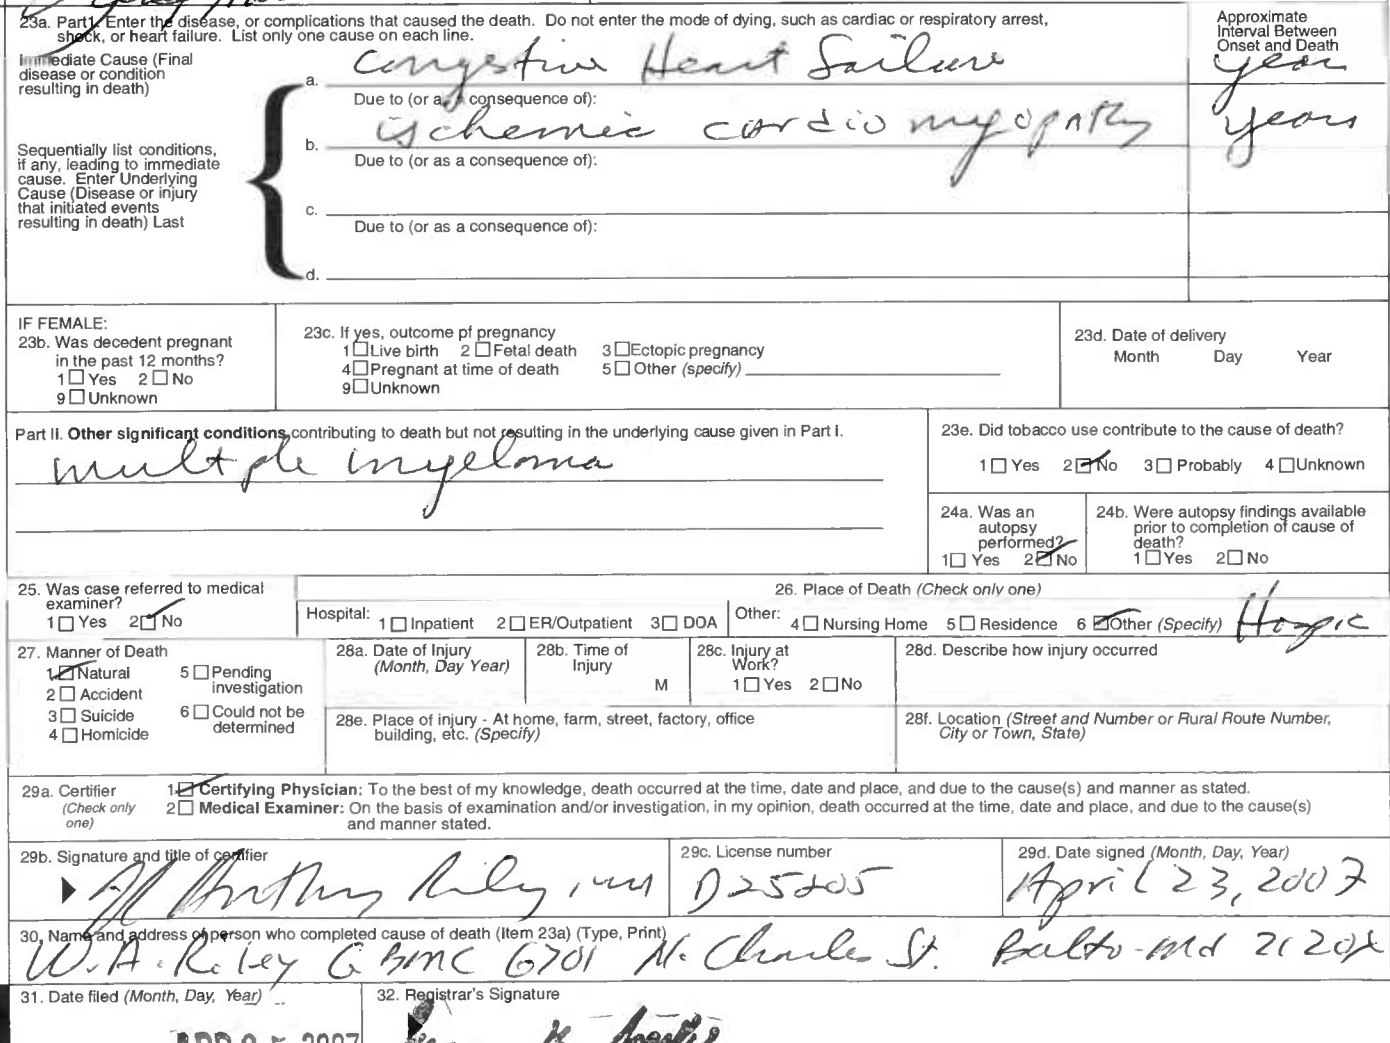 23a. Part I. Enter the disease, or complications that caused the death. Do not enter the mode of dying, such as cardiac or respiratory arrest,
shock, or heart failure. List only one cause on each line.
Approximate
Interval Between
Onset and Death
Immediate Cause (Final
disease or condition
resulting in death)
a. Congestive Heart Failure
year
Due to (or as a consequence of):
b. ischemic cardiomyopathy
years
Sequentially list conditions,
if any, leading to immediate
cause. Enter Underlying
Cause (Disease or injury
that initiated events
resulting in death) Last
Due to (or as a consequence of):
c.
Due to (or as a consequence of):
d.
IF FEMALE:
23b. Was decedent pregnant
in the past 12 months?
1 ☐ Yes 2 ☐ No
9 ☐ Unknown
23c. If yes, outcome pf pregnancy
1 ☐ Live birth 2 ☐ Fetal death 3 ☐ Ectopic pregnancy
4 ☐ Pregnant at time of death 5 ☐ Other (specify)
9 ☐ Unknown
23d. Date of delivery
Month Day Year
Part II. Other significant conditions contributing to death but not resulting in the underlying cause given in Part I.
multple myeloma
23e. Did tobacco use contribute to the cause of death?
1 ☐ Yes 2 ☑ No 3 ☐ Probably 4 ☐ Unknown
24a. Was an
autopsy
performed?
1 ☐ Yes 2 ☑ No
24b. Were autopsy findings available
prior to completion of cause of
death?
1 ☐ Yes 2 ☐ No
25. Was case referred to medical
examiner?
1 ☐ Yes 2 ☑ No
26. Place of Death (Check only one)
Hospital: 1 ☐ Inpatient 2 ☐ ER/Outpatient 3 ☐ DOA Other: 4 ☐ Nursing Home 5 ☐ Residence 6 ☑ Other (Specify)
27. Manner of Death
1 ☑ Natural
2 ☐ Accident
3 ☐ Suicide
4 ☐ Homicide
5 ☐ Pending
investigation
6 ☐ Could not be
determined
28a. Date of Injury
(Month, Day Year)
28b. Time of
Injury
M
28c. Injury at
Work?
1 ☐ Yes 2 ☐ No
28d. Describe how injury occurred
28e. Place of injury - At home, farm, street, factory, office
building, etc. (Specify)
28f. Location (Street and Number or Rural Route Number,
City or Town, State)
29a. Certifier
(Check only
one)
1 ☑ Certifying Physician: To the best of my knowledge, death occurred at the time, date and place, and due to the cause(s) and manner as stated.
2 ☐ Medical Examiner: On the basis of examination and/or investigation, in my opinion, death occurred at the time, date and place, and due to the cause(s)
and manner stated.
29b. Signature and title of certifier
Anthony Riley, md
29c. License number
D25205
29d. Date signed (Month, Day, Year)
April 23, 2007
30. Name and address of person who completed cause of death (Item 23a) (Type, Print)
W. A. Riley GBMC 6701 N. Charles St. Balto-md
31. Date filed (Month, Day, Year)
32. Registrar's Signature